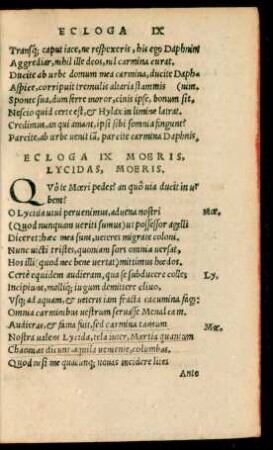 ECLOGA IX
Transq; caput iace, ne respexeris, his ego Daphnim
Aggrediar, nihil ille deos, nil carmina curat.
Ducite ab urbe domum mea carmina, ducite Daph=
Aspice, corripuit tremulis altaria flammis (nim.
Sponte sua, dum ferre moror, cinis ipse, bonum sit,
Nescio quid certe est, & Hylax in limine latrat.
Credimus, an qui amant, ipsi sibi somnia fingunt?
Parcite, ab urbe uenit iã, parcite carmina Daphnis.
ECLOGA IX MOERIS,
LYCIDAS, MOERIS.
QVò te Mœri pedes? an quò uia ducit in ur
bem?
O Lycida uiui peruenimus, aduena nostri Mœ.
(Quod nunquam ueriti sumus) ut possessor agelli
Diceret: hæc mea sunt, ueteres migrate coloni.
Nunc uicti tristes, quoniam sors omnia uersat,
Hos illi (quod nec bene uertat) mittimus hœdos.
Certè equidem audieram, qua se subducere colles Ly.
Incipiunt, molliq; iugum demittere cliuo,
Vsq; ad aquam, & ueteris iam fracta cacumina fagi:
Omnia carminibus uestrum seruasse Menalcam.
Audieras, & fama fuit, sed carmina tantum Mœ.
Nostra ualent Lycida, tela inter Martia quantum
Chaonias dicunt aquila ueniente, columbas.
Quod nisi me quacunq; nouas incidere lites
Ante